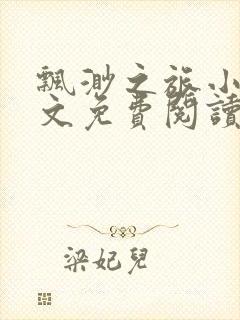 飄渺之旅小
文免費閱讀
梁妃兒